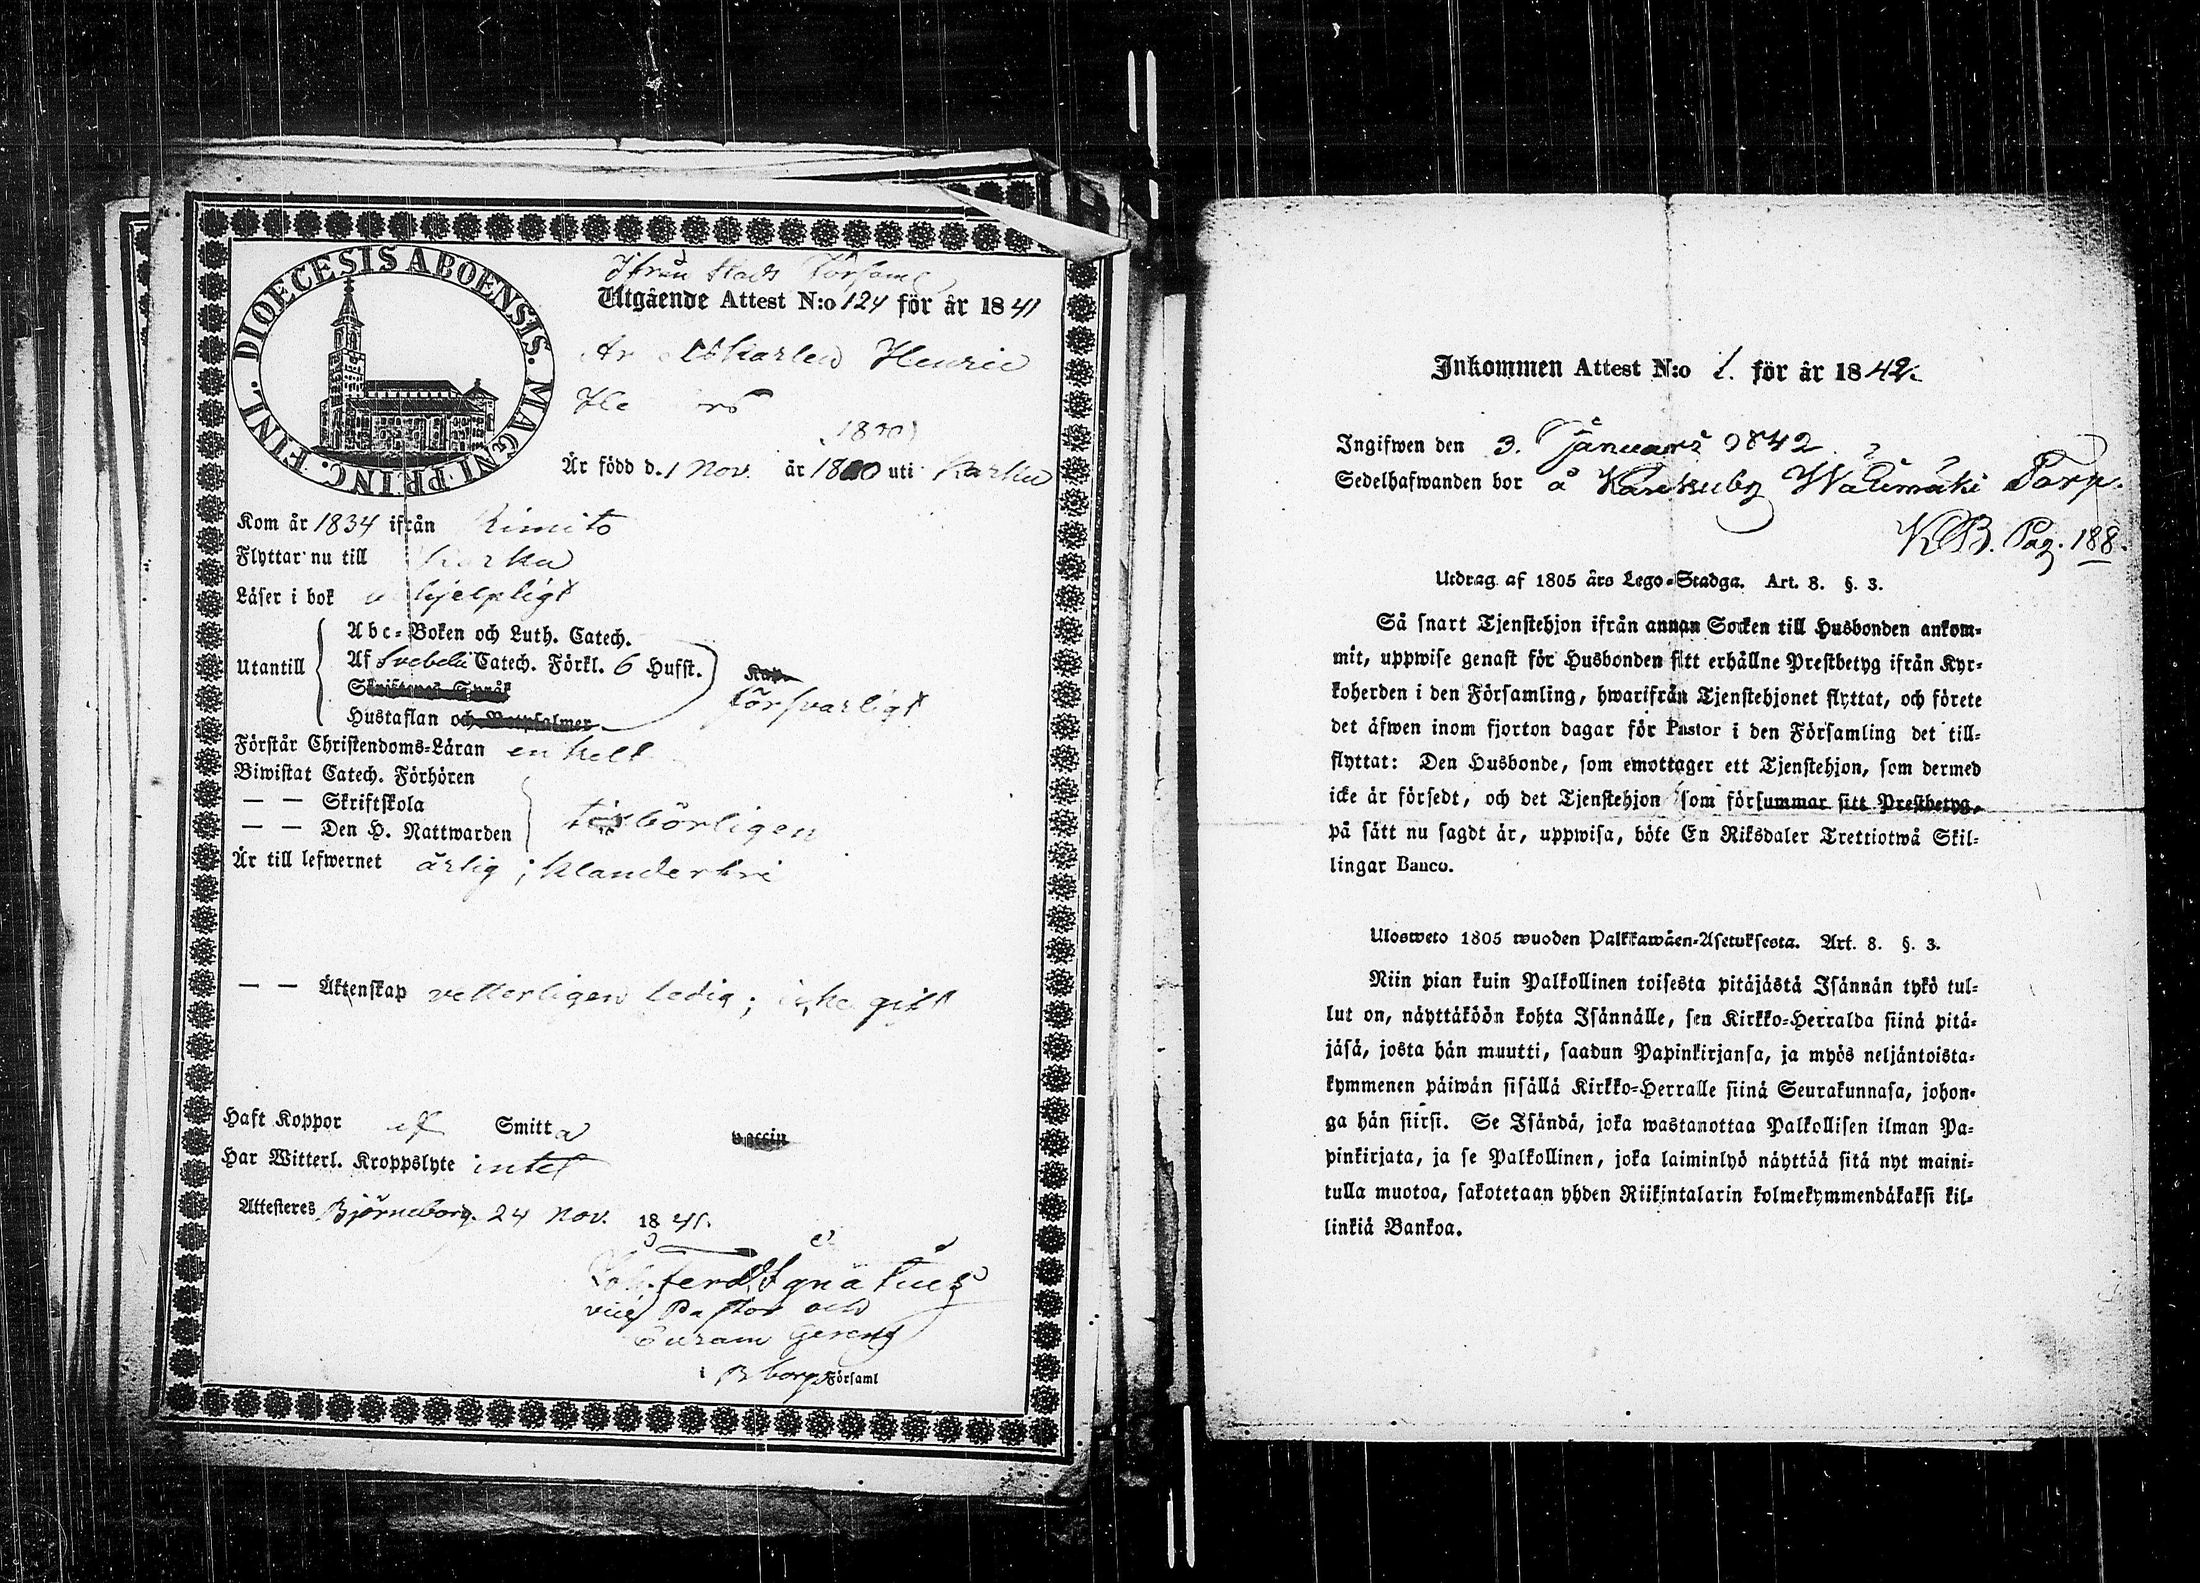 Ifrån Stads Församl
DIOECESIS ABOENSIS. MAGNI PRINC. FINL.
Utgående Attest N:o 124 för år 1841
Henric
1820
Är född d. 1 Nov. år 18 0 uti Karku
Kom år 1834 ifrån Kimito
Flyttar nu till Karku
Läser i bok hjelpligt
Abc-Boken och Luth. Catech.
Utantill Af Svebelii Catech. Förkl. 6 Hufst.
Skriftenes Språk
försvarligt
Hustaflan och Botpsalmer
Förstår Christendoms-Läran enkelt
Biwistat Catech. Förhören
— — Skriftskola
— — Den H. Nattwarden behörligen
Är till lefwernet ärlig; klanderfri
— — Äktenskap vetterligen ledig; icke gift
Haft Koppor af Smitta vaccin
Har Witterl. Kroppslyte intet
Attesteres Björneborg. 24 Nov. 1841.
Ferd. Ignatius
vice Pastor och
Curam Gerens
i Bborgs Församl
Inkommen Attest N:o 1. för år 1842.
Ingifwen den 3. Januari 1842
Sedelhafwanden bor å Karkuby Wälimäki Torp.
KB. Pag. 188.
Utdrag af 1805 års Lego-Stadga. Art. 8. §. 3.
Så snart Tjenstehjon ifrån annan Socken till Husbonden ankom-
mit, uppwise genast för Husbonden sitt erhållne Prestbetyg ifrån Kyr-
koherden i den Församling, hwarifrån Tjenstehjonet flyttat, och förete
det äfwen inom fjorton dagar för Pastor i den Församling det till-
flyttat: Den Husbonde, som emottager ett Tjenstehjon, som dermed
icke är försedt, och det Tjenstehjon som försummar sitt Prestbetyg,
på sätt nu sagdt är, uppwisa, böte En Riksdaler Trettiotwå Skil-
lingar Banco.
Ulosweto 1805 wuoden Palkkawäen-Asetuksesta. Art. 8. §. 3.
Niin pian kuin Palkollinen toisesta pitäjästä Isännän tykö tul-
lut on, näyttäköön kohta Isännälle, sen Kirkko-Herralda siinä pitä-
jäsä, josta hän muutti, saadun Papinkirjansa, ja myös neljäntoista-
kymmenen päiwän sisällä Kirkko-Herralle siinä Seurakunnasa, johon-
ga hän siirsi. Se Isändä, joka wastanottaa Palkollisen ilman Pa-
pinkirjata, ja se Palkollinen, joka laiminlyö näyttää sitä nyt maini-
tulla muotoa, sakotetaan yhden Riikintalarin kolmekymmendäkaksi kil-
linkiä Bankoa.